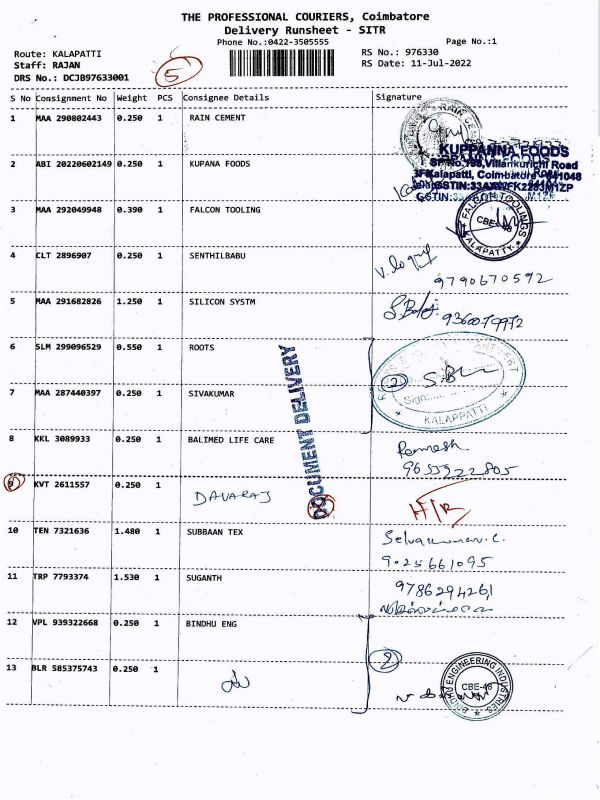 THE PROFESSIONAL COURIERS, Coimbatore
Delivery Runsheet - SITR
Phone No.:0422-3505555
Page No.:1
Route: KALAPATTI
Staff: RAJAN
DRS No.: DCJB97633001
5
RS No.: 976330
RS Date: 11-Jul-2022
S No Consignment No Weight PCS Consignee Details Signature
1 MAA 290802443 0.250 1 RAIN CEMENT
KUPPANNA FOODS
SF No.198, Vilankurichi Road
Kalapatti, Coimbatore - 641048
2 ABI 20220602149 0.250 1 KUPANA FOODS
3 MAA 292049948 0.390 1 FALCON TOOLING
FALCON TOOLINGS
CBE-48
KALAPATTY
4 CLT 2896907 0.250 1 SENTHILBABU
9790670592
5 MAA 291682826 1.250 1 SILICON SYSTM
9360079972
6 SLM 299096529 0.550 1 ROOTS
2
KALAPPATTI
DOCUMENT DELIVERY
7 MAA 287440397 0.250 1 SIVAKUMAR
8 KKL 3089933 0.250 1 BALIMED LIFE CARE
Ramesh
9655922805
9 KVT 2611557 0.250 1 DAVARAJ
10 TEN 7321636 1.480 1 SUBBAAN TEX
Selvakumar.C.
9025661095
11 TRP 7793374 1.530 1 SUGANTH
9786294261
12 VPL 939322668 0.250 1 BINDHU ENG
2
13 BLR 585375743 0.250 1
BINDHU ENGINEERING INDUSTRIES
CBE-48